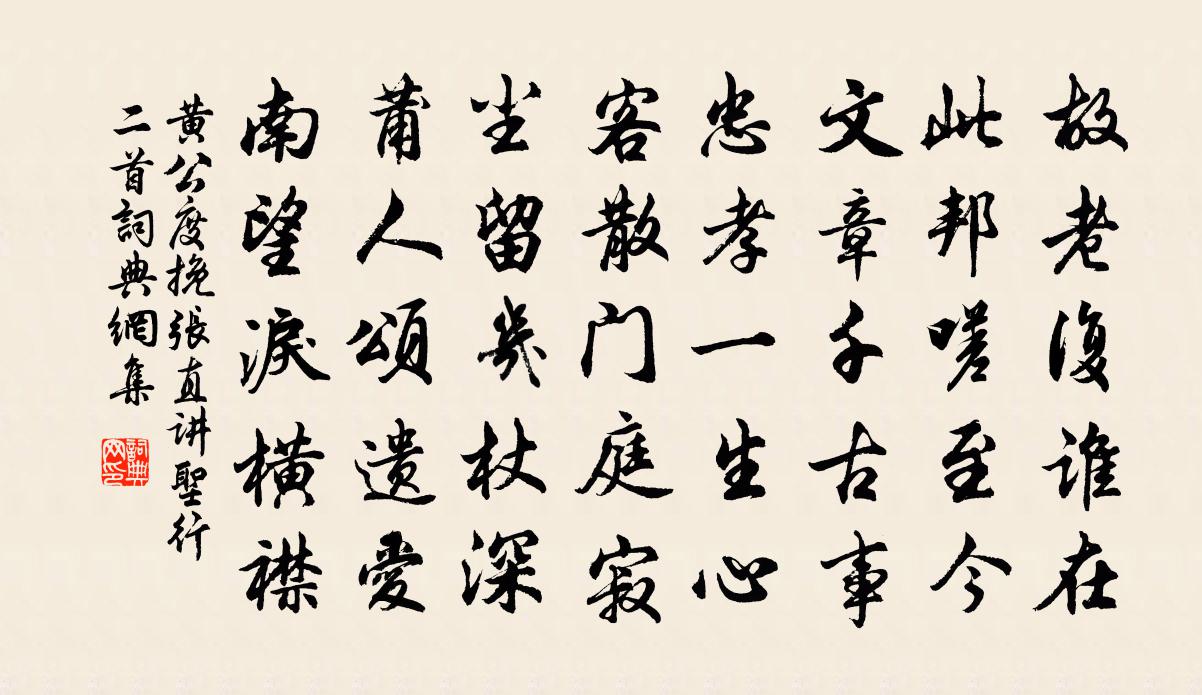 故老復谁在
此邦嗟至今
文章千古事
忠孝一生心
客散门庭寂
尘留几杖深
莆人頌遗愛
南望淚横襟
黄公度挽張直讲聖行
二首詞典網集
詞典
网印